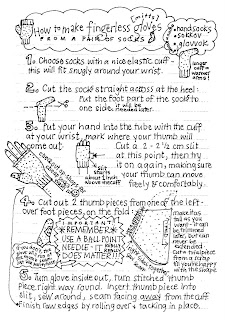 How to make fingerless gloves
[mitts]
FROM A PAIR OF SOCKS
handsocks
socksu
glovvok
longer cuff = warmer arms!
1. CHOOSE socks with a nice elastic cuff -
this will fit snugly around your wrist.
2. Cut the sock straight across at the heel:
Put the foot part of the sock to
one side. it will be needed later.
3. Put your hand into the tube with the cuff
at your wrist, mark where your thumb will
come out
Cut a 2 - 2½ cm slit
at this point, then try
it on again, making sure
your thumb can move
freely & comfortably.
starts about 1 inch above the cuff
4. Cut out 2 thumb pieces from one of the left-
over foot pieces, on the fold:
IMPORTANT!
*REMEMBER*
USE A BALL POINT
NEEDLE - IT
DOES MATTER!!
make this as
tall as you
want - it can
be trimmed
later, but can
never be
extended.
5. Turn glove inside out, turn stitched thumb
piece right way round. Insert thumb piece into
slit, sew around, seam facing away from the cuff
Finish raw edges by rolling over & tacking in place.